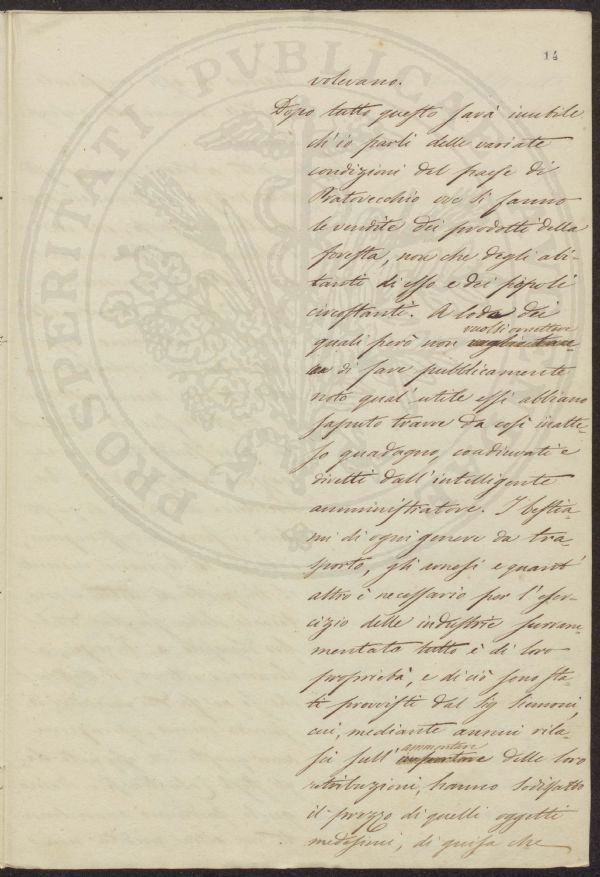 14
volevano.
Dopo tutto questo sarà inutile
ch'io parli delle variate
condizioni del paese di
Pratovecchio ove si fanno
le vendite dei prodotti della
foresta, non che degli abi-
tanti di esso e dei popoli
circostanti. A lode dei
vuolsi omettere
quali però non
di fare pubblicamente
noto qual'utile essi abbiano
saputo trarre da così inatte-
so guadagno, coadiuvati e
diretti dall'intelligente
amministratore. I bestia-
mi di ogni genere da tra-
sporto, gli arnesi e quant'
altro è necessario per l'eser-
cizio delle industrie surram-
mentata tutto è di loro
proprietà, e di ciò sono sta-
ti provvisti dal Sig Siemoni,
cui, mediante annui rila-
ammontare
sci sull' importare delle loro
retribuzioni, hanno sodisfatto
il prezzo di quelli oggetti
medesimi, di guisa che
PROSPERITATI PVBLICAE